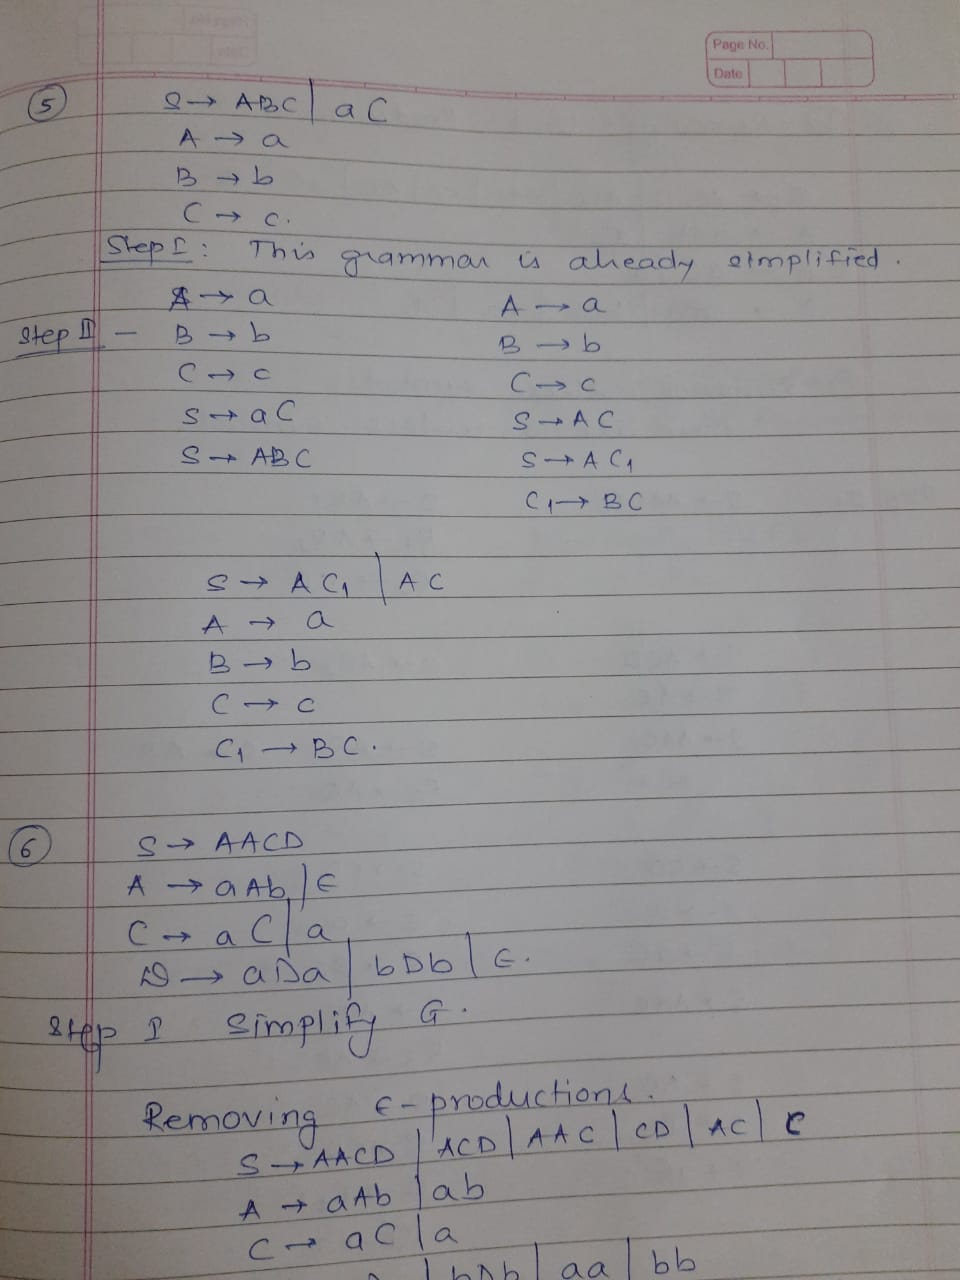 Page No.
Date
5 S → ABC | aC
A → a
B → b
C → c.
Step I : This grammar is already simplified.
A → a A → a
Step II – B → b B → b
C → c C → c
S → aC S → AC
S → ABC S → AC₁
C₁ → BC
S → AC₁ | AC
A → a
B → b
C → c
C₁ → BC.
6 S → AACD
A → aAb | ϵ
C → aC | a
D → aDa | bDb | ϵ.
Step I Simplify G.
Removing ϵ-productions.
S → AACD | ACD | AAC | CD | AC | C
A → aAb | ab
C → aC | a
| bDb | aa | bb